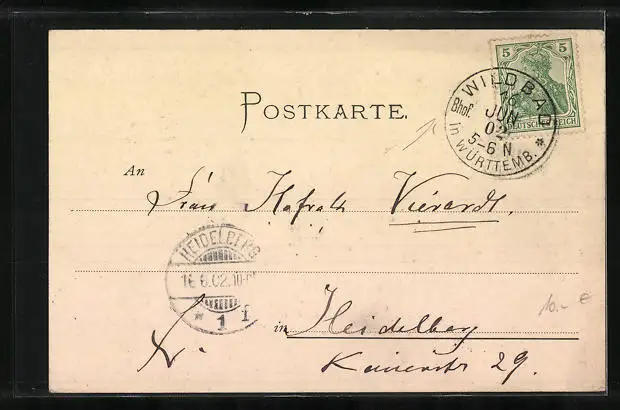 5 5
DEUTSCHES REICH
WILDBAD
Bhof.
16
JUN
02
5-6 N.
in WÜRTTEMB.
POSTKARTE.
An
Frau Hofrath Vierordt.
HEIDELBERG
16.6.02.10-
* 1 f
in Heidelberg
29.
10.- €